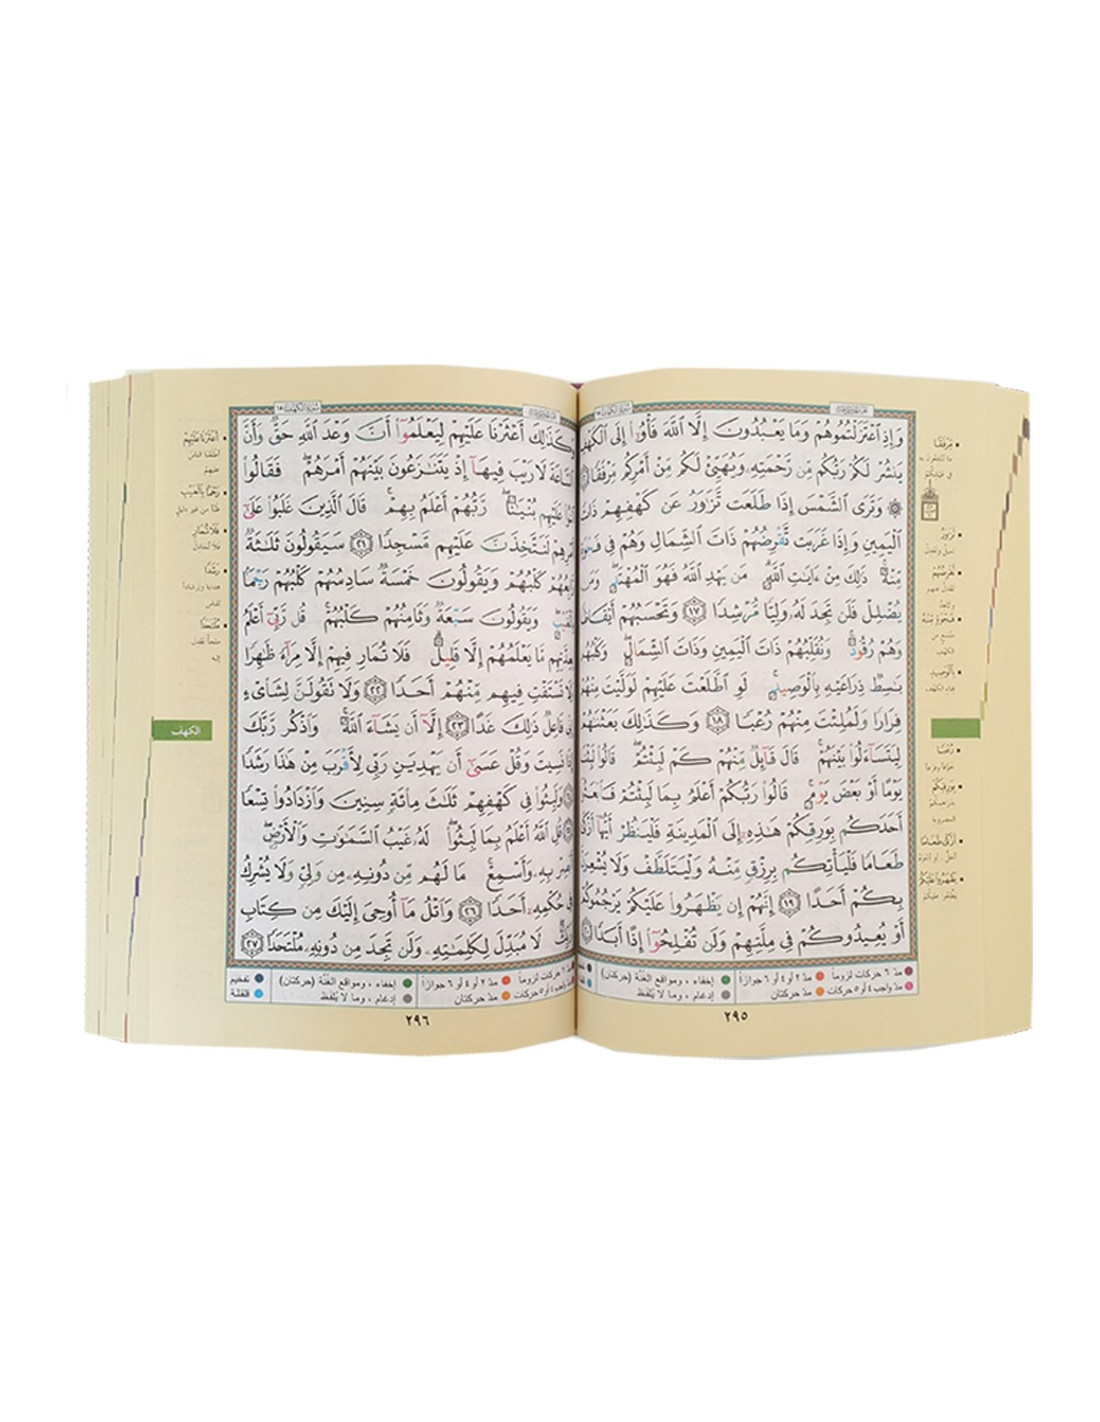 سورة الكهف ١٨
وَإِذِ ٱعْتَزَلْتُمُوهُمْ وَمَا يَعْبُدُونَ إِلَّا ٱللَّهَ فَأْوُۥٓا۟ إِلَى ٱلْكَهْفِ
يَنشُرْ لَكُمْ رَبُّكُم مِّن رَّحْمَتِهِۦ وَيُهَيِّئْ لَكُم مِّنْ أَمْرِكُم مِّرْفَقًا
۞ وَتَرَى ٱلشَّمْسَ إِذَا طَلَعَت تَّزَٰوَرُ عَن كَهْفِهِمْ ذَاتَ
ٱلْيَمِينِ وَإِذَا غَرَبَت تَّقْرِضُهُمْ ذَاتَ ٱلشِّمَالِ وَهُمْ فِى فَجْوَةٍ
مِّنْهُ ۚ ذَٰلِكَ مِنْ ءَايَٰتِ ٱللَّهِ ۗ مَن يَهْدِ ٱللَّهُ فَهُوَ ٱلْمُهْتَدِ ۖ وَمَن
يُضْلِلْ فَلَن تَجِدَ لَهُۥ وَلِيًّا مُّرْشِدًا ١٧ وَتَحْسَبُهُمْ أَيْقَاظًا
وَهُمْ رُقُودٌ ۚ وَنُقَلِّبُهُمْ ذَاتَ ٱلْيَمِينِ وَذَاتَ ٱلشِّمَالِ ۖ وَكَلْبُهُم
بَٰسِطٌ ذِرَاعَيْهِ بِٱلْوَصِيدِ ۚ لَوِ ٱطَّلَعْتَ عَلَيْهِمْ لَوَلَّيْتَ مِنْهُمْ
فِرَارًا وَلَمُلِئْتَ مِنْهُمْ رُعْبًا ١٨ وَكَذَٰلِكَ بَعَثْنَٰهُمْ
لِيَتَسَآءَلُوا۟ بَيْنَهُمْ ۚ قَالَ قَآئِلٌ مِّنْهُمْ كَمْ لَبِثْتُمْ ۖ قَالُوا۟ لَبِثْنَا
يَوْمًا أَوْ بَعْضَ يَوْمٍ ۚ قَالُوا۟ رَبُّكُمْ أَعْلَمُ بِمَا لَبِثْتُمْ فَٱبْعَثُوٓا۟
أَحَدَكُم بِوَرِقِكُمْ هَٰذِهِۦٓ إِلَى ٱلْمَدِينَةِ فَلْيَنظُرْ أَيُّهَآ أَزْكَىٰ
طَعَامًا فَلْيَأْتِكُم بِرِزْقٍ مِّنْهُ وَلْيَتَلَطَّفْ وَلَا يُشْعِرَنَّ
بِكُمْ أَحَدًا ١٩ إِنَّهُمْ إِن يَظْهَرُوا۟ عَلَيْكُمْ يَرْجُمُوكُمْ
أَوْ يُعِيدُوكُمْ فِى مِلَّتِهِمْ وَلَن تُفْلِحُوٓا۟ إِذًا أَبَدًا
مِرْفَقًا
تَزَاوَرُ
تَقْرِضُهُمْ
فَجْوَةٍ مِنْهُ
بِالْوَصِيدِ
رُعْبًا
بِوَرِقِكُمْ
أَزْكَى طَعَامًا
يَظْهَرُوا عَلَيْكُمْ
مدّ ٦ حركات لزوماً مدّ ٢ أو ٤ أو ٦ جوازاً إخفاء ، ومواقع الغنّة (حركتان)
مدّ واجب ٤ أو ٥ حركات مدّ حركتان إدغام ، وما لا يُلفَظ
٢٩٥
سورة الكهف ١٨
وَكَذَٰلِكَ أَعْثَرْنَا عَلَيْهِمْ لِيَعْلَمُوٓا۟ أَنَّ وَعْدَ ٱللَّهِ حَقٌّ وَأَنَّ
ٱلسَّاعَةَ لَا رَيْبَ فِيهَآ إِذْ يَتَنَٰزَعُونَ بَيْنَهُمْ أَمْرَهُمْ ۖ فَقَالُوا۟
ٱبْنُوا۟ عَلَيْهِم بُنْيَٰنًا ۖ رَّبُّهُمْ أَعْلَمُ بِهِمْ ۚ قَالَ ٱلَّذِينَ غَلَبُوا۟ عَلَىٰٓ
أَمْرِهِمْ لَنَتَّخِذَنَّ عَلَيْهِم مَّسْجِدًا ٢١ سَيَقُولُونَ ثَلَٰثَةٌ
رَّابِعُهُمْ كَلْبُهُمْ وَيَقُولُونَ خَمْسَةٌ سَادِسُهُمْ كَلْبُهُمْ رَجْمًۢا
بِٱلْغَيْبِ ۖ وَيَقُولُونَ سَبْعَةٌ وَثَامِنُهُمْ كَلْبُهُمْ ۚ قُل رَّبِّىٓ أَعْلَمُ
بِعِدَّتِهِم مَّا يَعْلَمُهُمْ إِلَّا قَلِيلٌ ۗ فَلَا تُمَارِ فِيهِمْ إِلَّا مِرَآءً ظَٰهِرًا
وَلَا تَسْتَفْتِ فِيهِم مِّنْهُمْ أَحَدًا ٢٢ وَلَا تَقُولَنَّ لِشَا۟ىْءٍ
إِنِّى فَاعِلٌ ذَٰلِكَ غَدًا ٢٣ إِلَّآ أَن يَشَآءَ ٱللَّهُ ۚ وَٱذْكُر رَّبَّكَ
إِذَا نَسِيتَ وَقُلْ عَسَىٰٓ أَن يَهْدِيَنِ رَبِّى لِأَقْرَبَ مِنْ هَٰذَا رَشَدًا
وَلَبِثُوا۟ فِى كَهْفِهِمْ ثَلَٰثَ مِا۟ئَةٍ سِنِينَ وَٱزْدَادُوا۟ تِسْعًا
قُلِ ٱللَّهُ أَعْلَمُ بِمَا لَبِثُوا۟ ۖ لَهُۥ غَيْبُ ٱلسَّمَٰوَٰتِ وَٱلْأَرْضِ ۖ
أَبْصِرْ بِهِۦ وَأَسْمِعْ ۚ مَا لَهُم مِّن دُونِهِۦ مِن وَلِىٍّ وَلَا يُشْرِكُ
فِى حُكْمِهِۦٓ أَحَدًا ٢٦ وَٱتْلُ مَآ أُوحِىَ إِلَيْكَ مِن كِتَابِ
رَبِّكَ ۖ لَا مُبَدِّلَ لِكَلِمَٰتِهِۦ وَلَن تَجِدَ مِن دُونِهِۦ مُلْتَحَدًا ٢٧
أَعْثَرْنَا عَلَيْهِمْ
رَجْمًا بِالْغَيْبِ
فَلَا تُمَارِ
رَشَدًا
مُلْتَحَدًا
الكهف
مدّ ٦ حركات لزوماً مدّ ٢ أو ٤ أو ٦ جوازاً إخفاء ، ومواقع الغنّة (حركتان) تفخيم
مدّ واجب ٤ أو ٥ حركات مدّ حركتان إدغام ، وما لا يُلفَظ قلقلة
٢٩٦